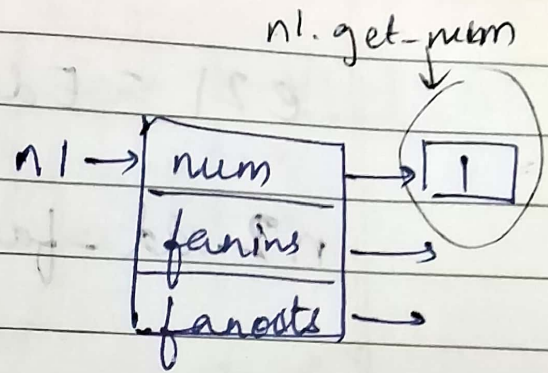 n1.get_num
n1 → num → 1
fanins →
fanouts →